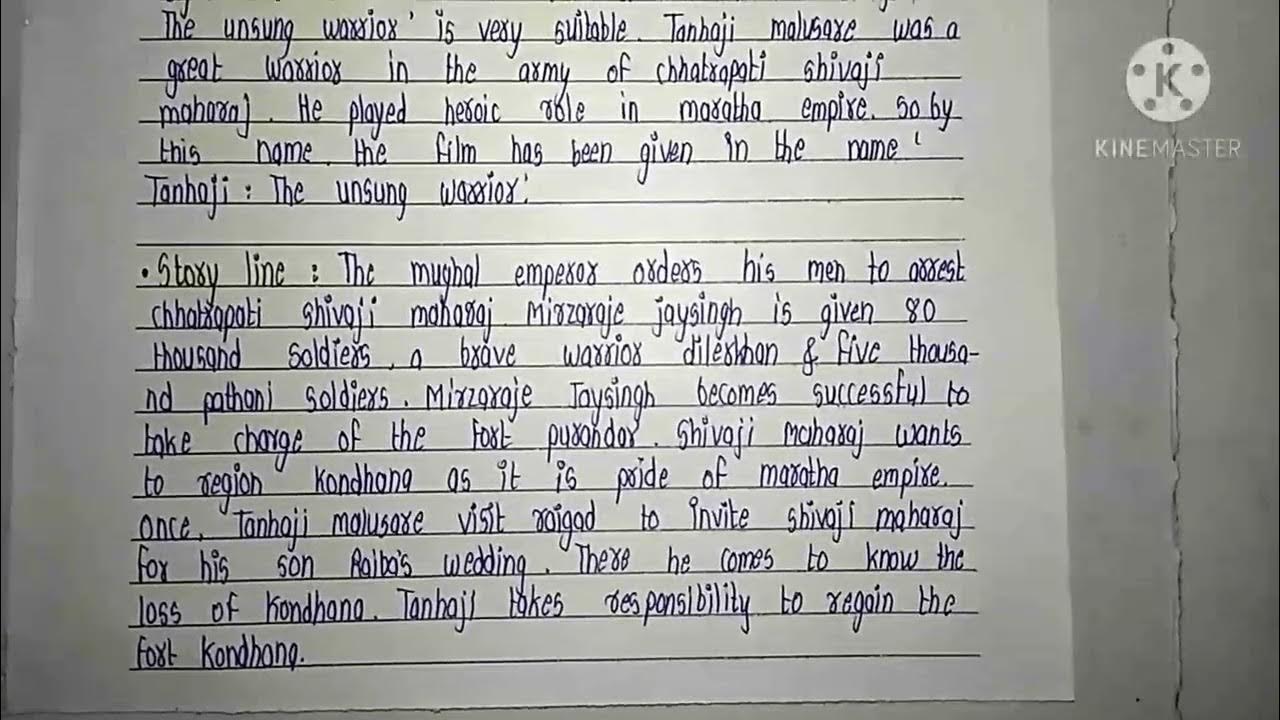 The unsung warrior' is very suitable. Tanhaji malusare was a
great warrior in the army of chhatrapati shivaji
maharaj. He played heroic role in maratha empire. So by
this name. the film has been given in the name '
Tanhaji : The unsung warrior.'
• Story line : The mughal emperor orders his men to arrest
chhatrapati shivaji maharaj. Mirzaraje jaysingh is given 80
thousand soldiers, a brave warrior dilerkhan & five thousa-
nd pathani soldiers. Mirzaraje Jaysingh becomes successful to
take charge of the fort purandar. Shivaji maharaj wants
to region kondhana as it is pride of maratha empire.
once, Tanhaji malusare visit raigad to invite shivaji maharaj
for his son Raiba's wedding. There he comes to know the
loss of Kondhana. Tanhaji takes responsibility to regain the
fort kondhana.
K
KINEMASTER